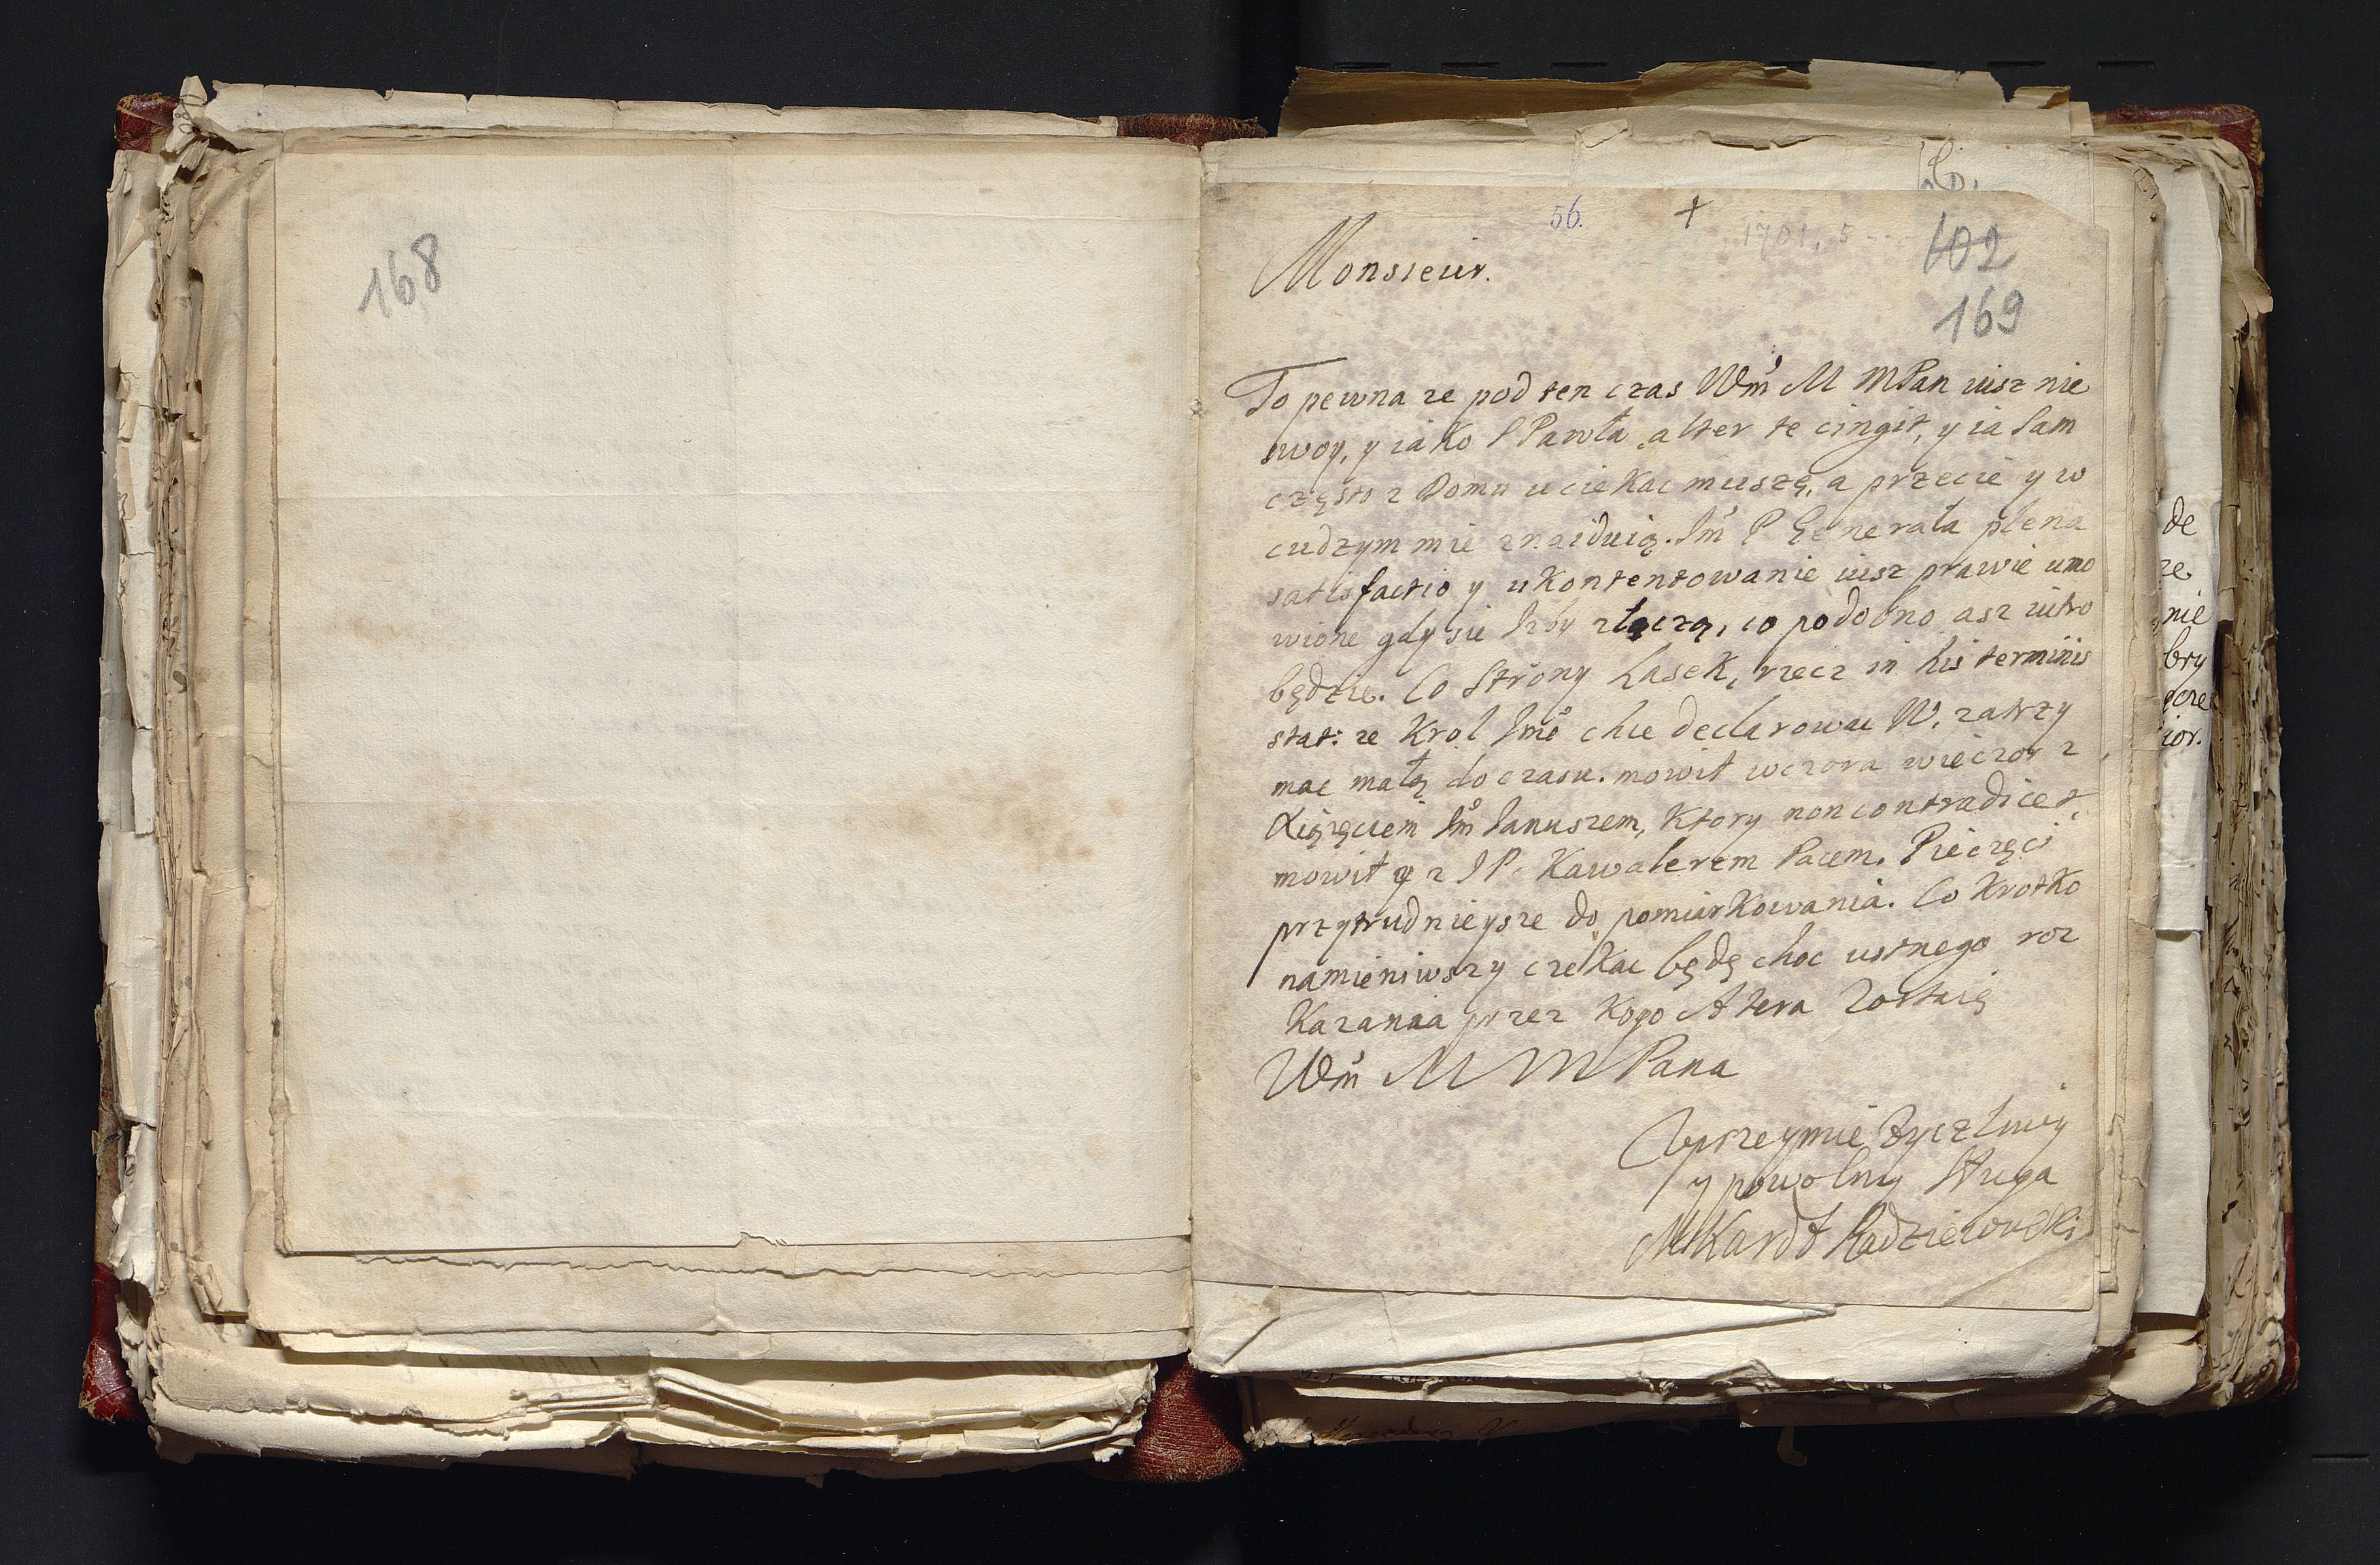 168
56. +
1701, 5
102
169
Monsieur.
To pewna ze pod ten czas Wm̃ M MPan iusz nie
swoy, y iako S Pawła alter te cingit, y ia sam
często z Domu uciekac muszę, a przecie y w
cudzym mie znaiduią. Im̃ P Generała plena
satisfactio y ukontentowanie iusz prawie umo
wione gdy sie Izby złączą, co podobno asz iutro
będzie. Co Strony Lasek, rzecz in his terminis
stat: ze Krol Jmć chce declarowac W. zatrzy
mac małą do czasu. mowił wczora wieczor z
Xiązęciem Jm̃ Januszem, Ktory non contradicet,
mowił y z JP. Kawalerem Pacem. Pieczęci
przytrudnieysze do pomiarkowania. Co Krotko
namieniwszy czekac będę choc ustnego roz
Kazania przez Kogo A tera Zostaię
Wm̃ M M Pana
Uprzeymie Zyczliwy
y powolny Sługa
MKard Radzieiowski
de
ze
nie
bry
ior.